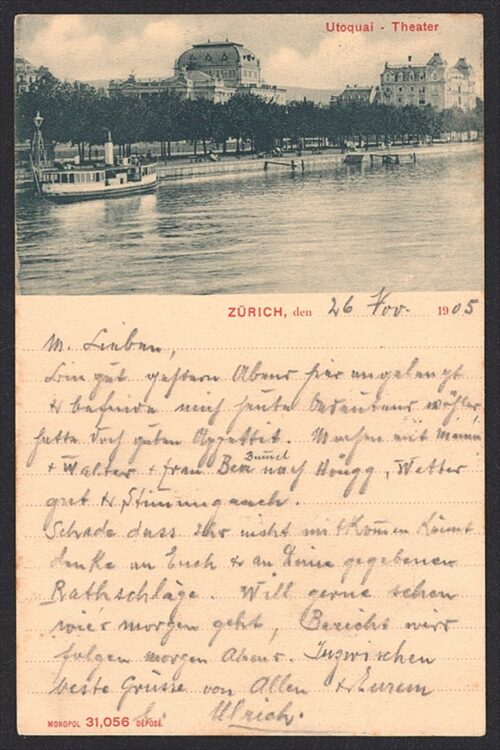 Utoquai - Theater
ZÜRICH, den 26 Nov. 1905
M. Lieben,
Bin gut gestern Abend hier angelangt
& befinde mich heute bedeutend wohler,
hatte doch guten Appettit. Machen mit Mama
Bummel
+ Walter + Frau nach Höngg, Wetter
gut & Stimmung auch.
Schade dass Ihr nicht mitkommen könnt
denke an Euch & an Deine gegebenen
Rathschläge. Will gerne sehen
wie's morgen geht, Bericht wird
folgen morgen Abend. Inzwischen
beste Grüsse von Allen & Eurem
Ulrich.
MONOPOL 31,056 DÉPOSÉ.